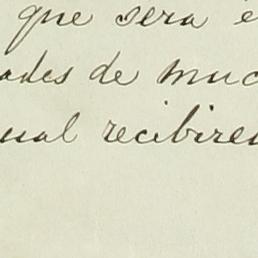 que sera e
ades de muc
ual recibire